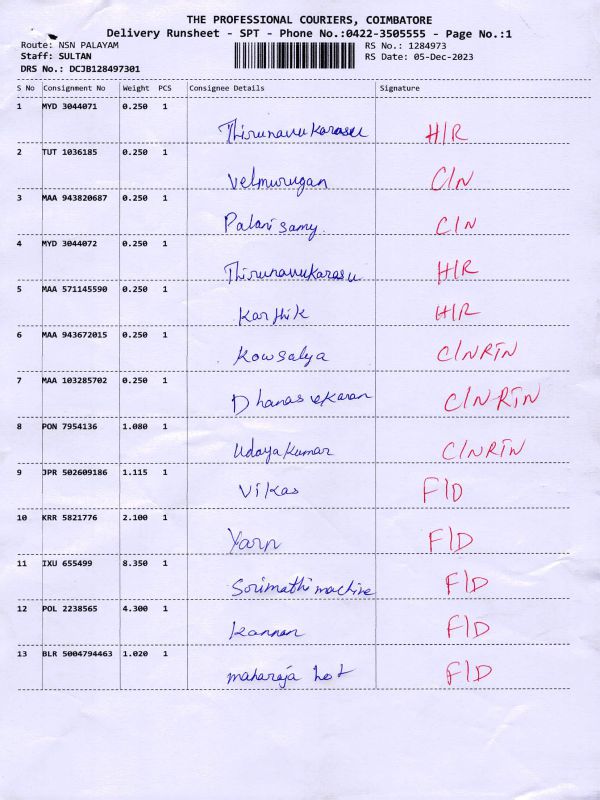 THE PROFESSIONAL COURIERS, COIMBATORE
Delivery Runsheet - SPT - Phone No.:0422-3505555 - Page No.:1
Route: NSN PALAYAM RS No.: 1284973
Staff: SULTAN RS Date: 05-Dec-2023
DRS No.: DCJB128497301
S No Consignment No Weight PCS Consignee Details Signature
1 MYD 3044071 0.250 1
Thirunavukarasu H/R
2 TUT 1036185 0.250 1
Velmurugan C/N
3 MAA 943820687 0.250 1
Palanisamy. C/N
4 MYD 3044072 0.250 1
Thirunavukarasu H/R
5 MAA 571145590 0.250 1
Karthik H/R
6 MAA 943672015 0.250 1
Kowsalya C/NRTN
7 MAA 103285702 0.250 1
Dhanasekaran C/NRTN
8 PON 7954136 1.080 1
Udayakumar C/NRTN
9 JPR 502609186 1.115 1
Vikas F/D
10 KRR 5821776 2.100 1
Yarn F/D
11 IXU 655499 8.350 1
Sorimathi machine F/D
12 POL 2238565 4.300 1
Kannan F/D
13 BLR 5004794463 1.020 1
maharaja hot F/D